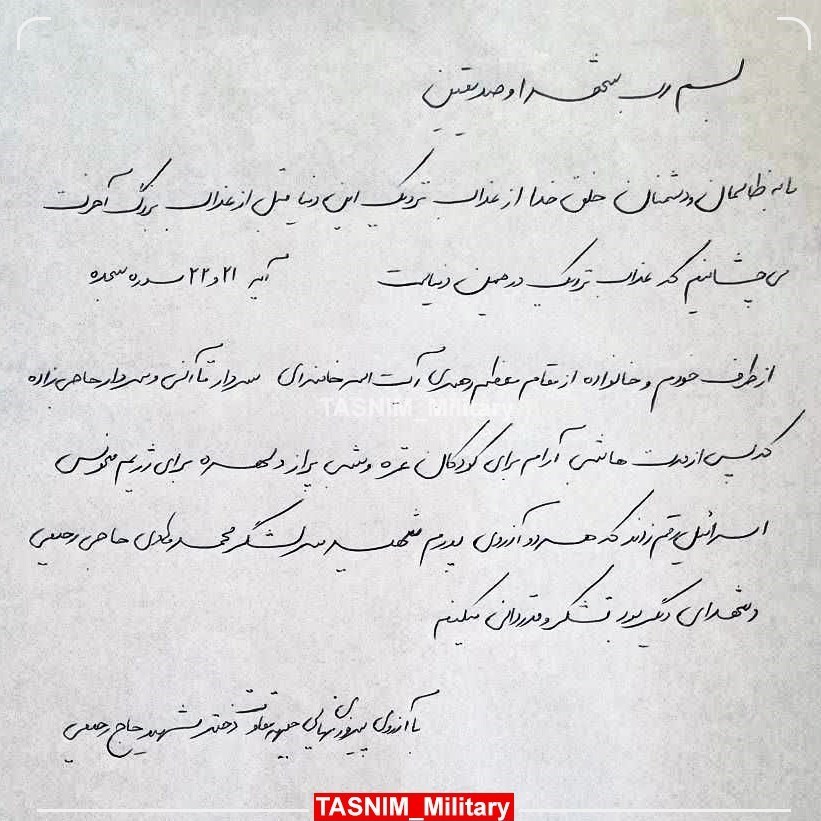 بسم رب شهدا و صدیقین
ما به ظالمان و دشمنان خلق خدا از عذاب نزدیک این دنیا قبل از عذاب بزرگ آخرت
می چشانیم که عذاب نزدیک در همین دنیاست آیه ۲۱ و ۲۲ سوره سجده
از طرف خودم و خانواده از مقام معظم رهبری آیت اله خامنه ای سردار قاآنی و سردار حاجی زاده
TASNIM_Military
که پس از مدت ها شبی آرام برای کودکان غزه و شبی پر از دلهره برای رژیم منحوس
اسرائیل رقم زدند که هر دو آرزوی پدرم شهید سرلشگر محمد هادی حاجی رحیمی
و شهدای دیگر بود تشکر و قدردانی میکنیم
با آرزوی پیروزی نهایی جبهه مقاومت دختر شهید حاج رحیمی
TASNIM_Military